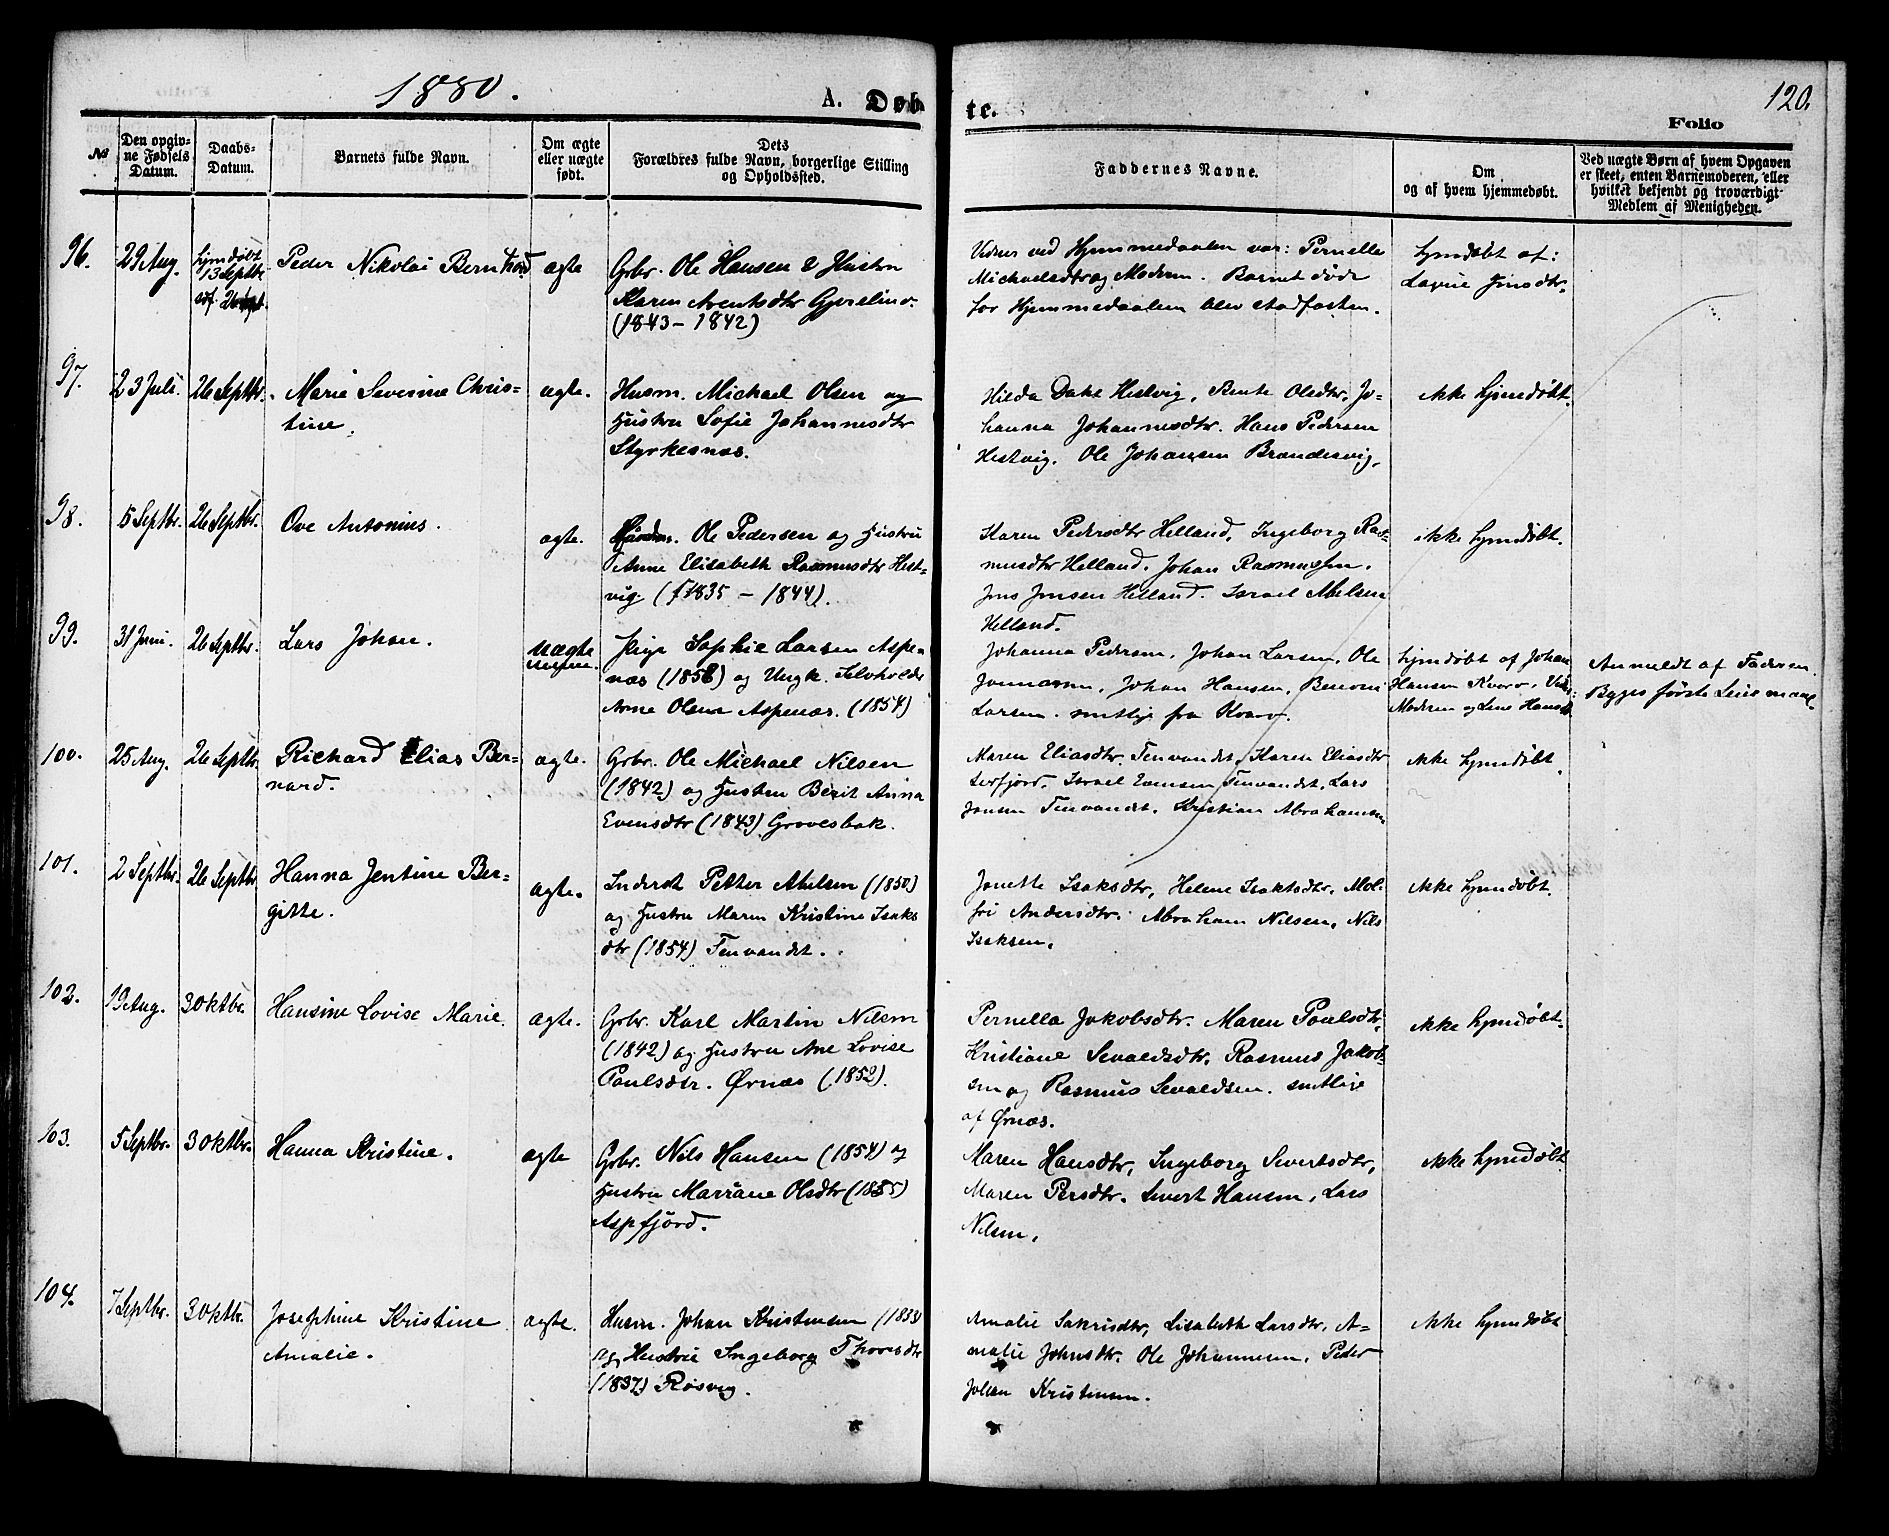 1880.
A. Døb
te.
120.
Folio
No
Den opgiv-
ne Fødsels
Datum.
Daabs-
Datum.
Barnets fulde Navn.
Om ægte
eller uægte
født.
Dets
Forældres fulde Navn, borgerlige Stilling
og Opholdssted.
Faddernes Navne.
Om
og af hvem hjemmedøbt.
Ved uægte Børn af hvem Opgaven
er skeet, enten Barnemoderen, eller
hvilket bekjendt og troværdigt
Medlem af Menigheden.
96.
29 Aug.
hjmdøbt
13 Septbr
Peder Nikolai Bernhard
ægte
Grbr. Ole Hansen & Hustru
Karen Arentsdtr
(1843 - 1842)
ved Hjemmedaaben var: Pernella
Michaelsdtr og Moderen. Barnet døde
før Hjemmedaaben blev stadfæstet.
hjmdøbt af:
Jensdtr.
97.
23 Juli.
26 Septbr.
Marie Severine Chris-
tine.
ægte.
Husm. Michael Olsen og
Hustru Sofie Johannesdtr
Styrkesnæs.
Hilda Dahl Hestvig, Bente Olsdtr, Jo-
hanna Johannesdtr. Hans Pedersen
Hestvig. Ole Johansen Brandesvig,
ikke hjmdøbt.
98.
5 Septbr.
26 Septbr.
Ove Antonius.
ægte.
Ole Pedersen og Hustru
Anne Elisabeth Rasmusdtr Hest-
vig. (1835 - 1844).
Karen Pedersdtr Helland, Ingeborg Ras-
musdtr Helland. Johan Rasmussen.
Jens Jensen Helland. Israel Abelsen
Helland.
ikke hjmdøbt.
99.
31 Juni.
26 Septbr.
Lars Johan.
uægte
Pige Sophie Larsen Aspe-
næs (1858) og Ungk. Selvholder
Arne Olsen Aspenæs. (1854)
Johanna Pedersen, Johan Larsen, Ole
Johan Hansen, Benoni
Larsen. samtlige fra Kvarv.
hjmdøbt af Johan
Hansen Kvarv.
Moderen og Lene
Anmeldt af Faderen
første Leiermaal.
100.
25 Aug.
26 Septbr.
Richard Elias Ber-
nard.
ægte.
Grbr. Ole Michael Nilsen
(1842) og Hustru Berit Anna
Evensdtr (1843) Grovesbak.
Maren Eliasdtr, Tenvandet, Karen Eliasdtr
Israel Tenvandet, Lars
Jansen Tenvandet. Kristian Abrahamsen
ikke hjmdøbt.
101.
2 Septbr.
26 Septbr
Hanna Jentine Ber-
gitte.
ægte.
Inderst Petter Abelsen (1850)
og Hustru Maren Kristine Isaks
dtr (1854) Tenvandet.
Janette Isaksdtr, Helene Isaksdtr. Mal-
fri Andersdtr. Abraham Nilsen, Nils
Isaksen.
ikke hjmdøbt.
102.
19 Aug.
3 Oktbr.
Hansine Lovise Marie.
ægte.
Grbr. Karl Martin Nilsen
(1842) og Hustru Ane Lovise
Paulsdtr. Ørnæs (1852).
Pernella Jakobsdtr. Maren Poulsdtr,
Kristiane Sevaldsdtr, Rasmus Jakob-
sen og Rasmus Sevaldsen. samtlige
af Ørnæs.
ikke hjmdøbt.
103.
5 Septbr.
3 Oktbr.
Hanna Kristine.
ægte
Grbr. Nils Hansen (1854) og
Hustru Marrane Olsdtr (1855)
Aspfjord.
Maren Hansdtr, Ingeborg Sivertsdtr,
Maren Persdtr. Sivert Hansen, Lars
Nilsen.
ikke hjmdøbt
104.
7 Septbr.
3 Oktbr.
Josephine Kristine
Amalie.
ægte.
Husm. Johan Kristensen (1833)
og Hustru Ingeborg Thoresdtr
(1837) Røsvig.
Amalie Lisabeth Larsdtr. A-
malie Johnsdtr. Ole Johannesen, Peder
Johan Kristensen.
ikke hjmdøbt